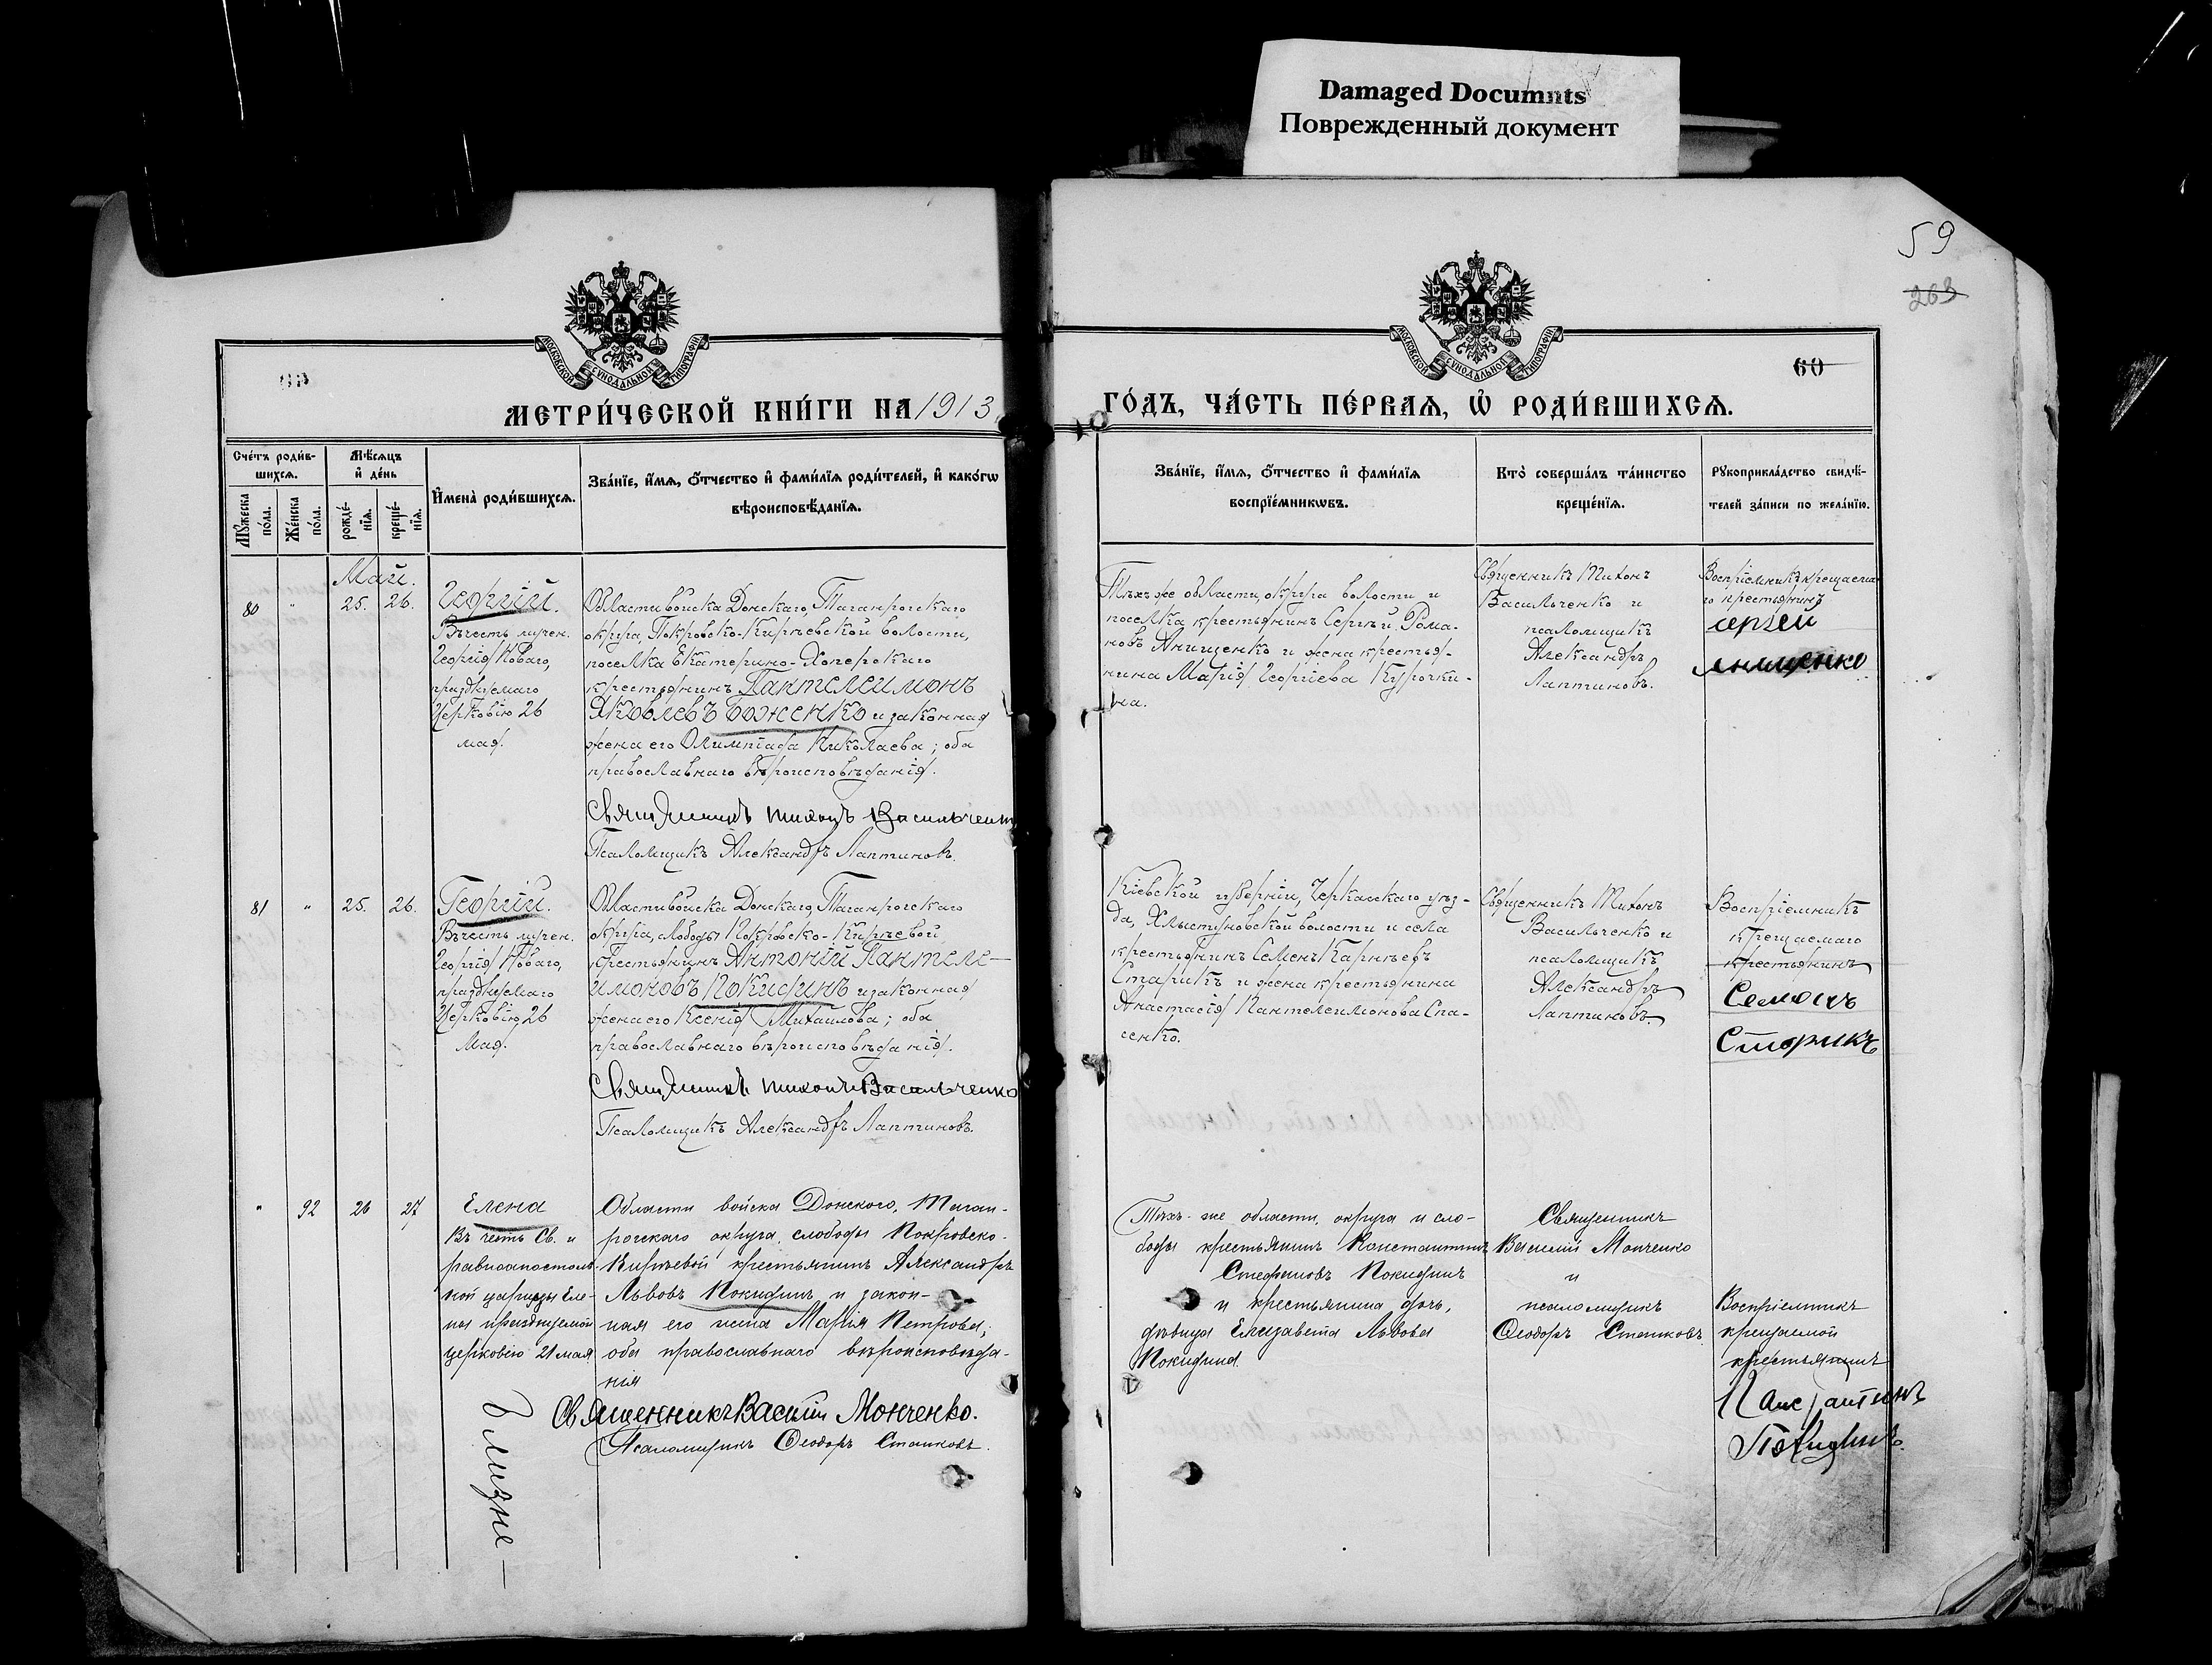 Damaged Documnts
Поврежденный документ
59
263
МОСКОВСКОЙ СУНОДАЛЬНОЙ ТИПОГРАФІИ
МОСКОВСКОЙ СУНОДАЛЬНОЙ ТИПОГРАФІИ
60
МЕТРИ́ЧЕСКОЙ КНИ́ГИ НА 1913
ГО́ДЪ, ЧА́СТЬ ПЕ́РВАѦ, Ѡ҆ РОДИ́ВШИХСѦ.
Сче́тъ роди́в-
шихсѧ.
Мꙋ́жеска по́ла.
Же́нска по́ла.
Мѣ́сѧцъ
и҆ де́нь
рожде́-
нїѧ.
креще́-
нїѧ.
И҆мена̀ роди́вшихсѧ.
Зва́нїе, и҆́мѧ, ѻ҆́тчество и҆ фами́лїѧ роди́телей, и҆ како́гѡ
вѣроисповѣ́данїѧ.
Зва́нїе, и҆́мѧ, ѻ҆́тчество и҆ фами́лїѧ
воспрїе́мникѡвъ.
Кто̀ соверша́лъ та́инство
креще́нїѧ.
Рꙋкоприкла́дство свидѣ́-
телей за́писи по жела́нїю.
Май.
80 " 25. 26.
Георгій.
Въ честь мучен.
Георгія Новаго,
празднуемаго
Церковію 26
мая.
Области войска Донскаго, Таганрогскаго
округа, Покровско-Кирѣевской волости,
поселка Екатерино-Хоперскаго
крестьянинъ Пантелеимонъ
Яковлевъ Боженко и законная
жена его Олимпіада Николаева; оба
православнаго вѣроисповѣданія.
Священникъ Тихонъ Васильченко
Псаломщикъ Александръ Лаптиновъ.
Тѣхъ же области, округа волости и
поселка крестьянинъ Сергѣй Рома-
новъ Анищенко и жена крестья-
нина Марія Георгіева Курочки-
на.
Священникъ Тихонъ
Васильченко и
псаломщикъ
Александръ
Лаптиновъ.
Воспріемникъ крещаема
го крестьянинъ
Сергей
Анищенко
81 " 25. 26.
Георгій.
Въ честь мучен.
Георгія Новаго,
празднуемаго
Церковію 26
Мая.
Области войска Донскаго, Таганрогскаго
округа, слободы Покровско-Кирѣевой
крестьянинъ Антоній Пантеле-
имоновъ Покидинъ и законная
жена его Ксенія Михайлова; оба
православнаго вѣроисповѣданія.
Священникъ Тихонъ Васильченко
Псаломщикъ Александръ Лаптиновъ.
Кіевской губерніи, Черкасскаго уѣз-
да, Хлыстуновской волости и села
крестьянинъ Семенъ Карнѣевъ
Старикъ и жена крестьянина
Анастасія Пантелеимонова Спа-
сенко.
Священникъ Тихонъ
Васильченко и
псаломщикъ
Александръ
Лаптиновъ.
Воспріемникъ
крещаемаго
крестьянинъ
Семенъ
Старикъ
" 92 26 27
Елена
Въ честь Св. и
равноапостоль-
ной царицы Еле-
ны празднуемой
церковію 21 мая
близне-
Области войска Донского, Таган-
рогскаго округа, слободы Покровско-
Кирѣевой крестьянинъ Александръ
Львовъ Покидинъ и закон-
ная его жена Марія Петрова;
оба православнаго вѣроисповѣда-
нія
Священникъ Василій Монченко.
Псаломщикъ Ѳеодоръ Станковъ.
Тѣхъ-же области, округа и сло-
боды крестьянинъ Константинъ
Стефановъ Покидинъ
и крестьянина дочь,
дѣвица Елизавета Львова
Покидина.
Священникъ
Василій Монченко
и
псаломщикъ
Ѳеодоръ Станковъ.
Воспріемникъ
крещаемой
крестьянинъ
Покидинъ.